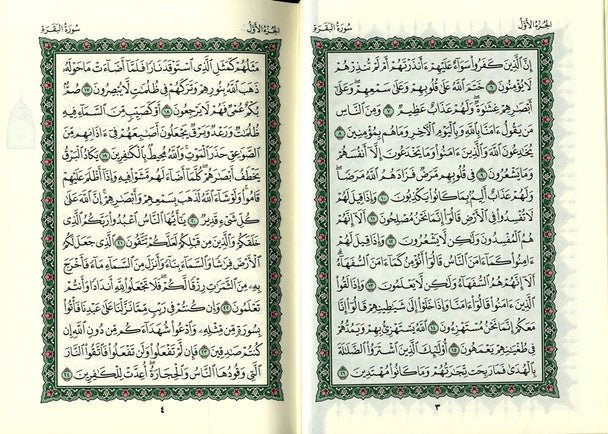 الجُزْءُ الأَوَّلُ سُورَةُ البَقَرَةِ
إِنَّ الَّذِينَ كَفَرُوا سَوَاءٌ عَلَيْهِمْ ءَأَنذَرْتَهُمْ أَمْ لَمْ تُنذِرْهُمْ
لَا يُؤْمِنُونَ ٦ خَتَمَ اللَّهُ عَلَىٰ قُلُوبِهِمْ وَعَلَىٰ سَمْعِهِمْ وَعَلَىٰ
أَبْصَٰرِهِمْ غِشَٰوَةٌ وَلَهُمْ عَذَابٌ عَظِيمٌ ٧ وَمِنَ النَّاسِ
مَن يَقُولُ ءَامَنَّا بِاللَّهِ وَبِالْيَوْمِ الْآخِرِ وَمَا هُم بِمُؤْمِنِينَ ٨
يُخَٰدِعُونَ اللَّهَ وَالَّذِينَ ءَامَنُوا وَمَا يَخْدَعُونَ إِلَّا أَنفُسَهُمْ
وَمَا يَشْعُرُونَ ٩ فِي قُلُوبِهِم مَّرَضٌ فَزَادَهُمُ اللَّهُ مَرَضًا
وَلَهُمْ عَذَابٌ أَلِيمٌ بِمَا كَانُوا يَكْذِبُونَ ١٠ وَإِذَا قِيلَ لَهُمْ
لَا تُفْسِدُوا فِي الْأَرْضِ قَالُوا إِنَّمَا نَحْنُ مُصْلِحُونَ ١١ أَلَا إِنَّهُمْ
هُمُ الْمُفْسِدُونَ وَلَٰكِن لَّا يَشْعُرُونَ ١٢ وَإِذَا قِيلَ لَهُمْ
ءَامِنُوا كَمَا ءَامَنَ النَّاسُ قَالُوا أَنُؤْمِنُ كَمَا ءَامَنَ السُّفَهَاءُ
أَلَا إِنَّهُمْ هُمُ السُّفَهَاءُ وَلَٰكِن لَّا يَعْلَمُونَ ١٣ وَإِذَا لَقُوا
الَّذِينَ ءَامَنُوا قَالُوا ءَامَنَّا وَإِذَا خَلَوْا إِلَىٰ شَيَٰطِينِهِمْ قَالُوا إِنَّا
مَعَكُمْ إِنَّمَا نَحْنُ مُسْتَهْزِءُونَ ١٤ اللَّهُ يَسْتَهْزِئُ بِهِمْ وَيَمُدُّهُمْ
فِي طُغْيَٰنِهِمْ يَعْمَهُونَ ١٥ أُولَٰئِكَ الَّذِينَ اشْتَرَوُا الضَّلَٰلَةَ
بِالْهُدَىٰ فَمَا رَبِحَت تِّجَٰرَتُهُمْ وَمَا كَانُوا مُهْتَدِينَ ١٦
٣
الجُزْءُ الأَوَّلُ سُورَةُ البَقَرَةِ
مَثَلُهُمْ كَمَثَلِ الَّذِي اسْتَوْقَدَ نَارًا فَلَمَّا أَضَاءَتْ مَا حَوْلَهُ
ذَهَبَ اللَّهُ بِنُورِهِمْ وَتَرَكَهُمْ فِي ظُلُمَٰتٍ لَّا يُبْصِرُونَ ١٧ صُمٌّ
بُكْمٌ عُمْيٌ فَهُمْ لَا يَرْجِعُونَ ١٨ أَوْ كَصَيِّبٍ مِّنَ السَّمَاءِ فِيهِ
ظُلُمَٰتٌ وَرَعْدٌ وَبَرْقٌ يَجْعَلُونَ أَصَٰبِعَهُمْ فِي ءَاذَانِهِم مِّنَ
الصَّوَٰعِقِ حَذَرَ الْمَوْتِ وَاللَّهُ مُحِيطٌ بِالْكَٰفِرِينَ ١٩ يَكَادُ الْبَرْقُ
يَخْطَفُ أَبْصَٰرَهُمْ كُلَّمَا أَضَاءَ لَهُم مَّشَوْا فِيهِ وَإِذَا أَظْلَمَ عَلَيْهِمْ
قَامُوا وَلَوْ شَاءَ اللَّهُ لَذَهَبَ بِسَمْعِهِمْ وَأَبْصَٰرِهِمْ إِنَّ اللَّهَ عَلَىٰ
كُلِّ شَيْءٍ قَدِيرٌ ٢٠ يَٰأَيُّهَا النَّاسُ اعْبُدُوا رَبَّكُمُ الَّذِي
خَلَقَكُمْ وَالَّذِينَ مِن قَبْلِكُمْ لَعَلَّكُمْ تَتَّقُونَ ٢١ الَّذِي جَعَلَ لَكُمُ
الْأَرْضَ فِرَٰشًا وَالسَّمَاءَ بِنَاءً وَأَنزَلَ مِنَ السَّمَاءِ مَاءً فَأَخْرَجَ
بِهِ مِنَ الثَّمَرَٰتِ رِزْقًا لَّكُمْ فَلَا تَجْعَلُوا لِلَّهِ أَندَادًا وَأَنتُمْ
تَعْلَمُونَ ٢٢ وَإِن كُنتُمْ فِي رَيْبٍ مِّمَّا نَزَّلْنَا عَلَىٰ عَبْدِنَا فَأْتُوا
بِسُورَةٍ مِّن مِّثْلِهِ وَادْعُوا شُهَدَاءَكُم مِّن دُونِ اللَّهِ إِن
كُنتُمْ صَٰدِقِينَ ٢٣ فَإِن لَّمْ تَفْعَلُوا وَلَن تَفْعَلُوا فَاتَّقُوا النَّارَ
الَّتِي وَقُودُهَا النَّاسُ وَالْحِجَارَةُ أُعِدَّتْ لِلْكَٰفِرِينَ ٢٤
٤